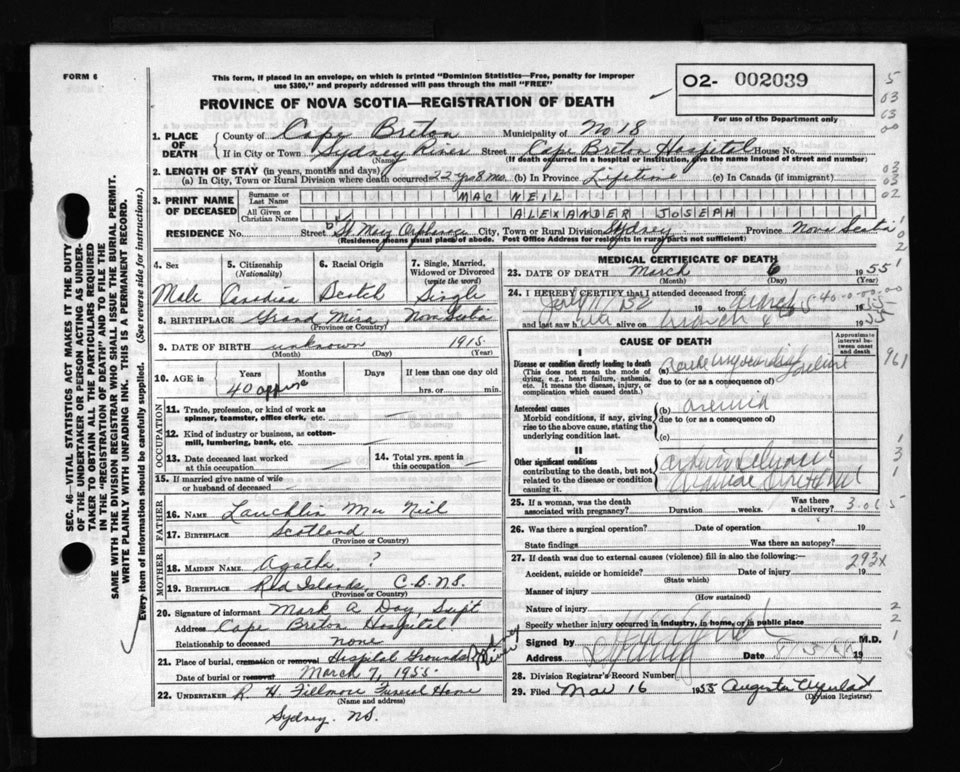 FORM 6
This form, if placed in an envelope, on which is printed "Dominion Statistics—Free, penalty for improper
use $300," and properly addressed will pass through the mail "FREE"
O2- 002039
For use of the Department only
PROVINCE OF NOVA SCOTIA—REGISTRATION OF DEATH
1. PLACE OF DEATH County of Cape Breton Municipality of No 18
If in City or Town Sydney River Street Cape Breton Hospital House No.
(Name) (If death occurred in a hospital or institution, give the name instead of street and number)
2. LENGTH OF STAY (in years, months and days)
(a) In City, Town or Rural Division where death occurred 22 yrs 8 mo. (b) In Province Lifetime (c) In Canada (if immigrant)
3. PRINT NAME OF DECEASED Surname or Last Name MAC NEIL
All Given or Christian Names ALEXANDER JOSEPH
RESIDENCE No. Street St Mary Orphanage City, Town or Rural Division Sydney Province Nova Scotia
(Residence means usual place of abode. Post Office Address for residents in rural parts not sufficient)
4. Sex Male
5. Citizenship (Nationality) Canadian
6. Racial Origin Scotch
7. Single, Married, Widowed or Divorced (write the word) Single
8. BIRTHPLACE Grand Mira, Nova Scotia
(Province or Country)
9. DATE OF BIRTH unknown 1915
(Month) (Day) (Year)
10. AGE in Years Months Days If less than one day old
40 approx hrs. or min.
OCCUPATION
11. Trade, profession, or kind of work as spinner, teamster, office clerk, etc.
12. Kind of industry or business, as cotton-mill, lumbering, bank, etc.
13. Date deceased last worked at this occupation
14. Total yrs. spent in this occupation
15. If married give name of wife or husband of deceased
FATHER
16. NAME Lauchlin Mac Neil
17. BIRTHPLACE Scotland
(Province or Country)
MOTHER
18. MAIDEN NAME Agatha ?
19. BIRTHPLACE Red Islands, C.B. N.S.
(Province or Country)
20. Signature of informant Mark A Day, Supt
Address Cape Breton Hospital
Relationship to deceased none
21. Place of burial, cremation or removal Hospital Grounds Sydney River
Date of burial or removal March 7, 1955
22. UNDERTAKER R. H. Fillmore Funeral Home
(Name and address)
Sydney. N.S.
MEDICAL CERTIFICATE OF DEATH
23. DATE OF DEATH March 6 1955
(Month) (Day)
24. I HEREBY CERTIFY that I attended deceased from:
and last saw alive on March
CAUSE OF DEATH
Approximate interval between onset and death
I
Disease or condition directly leading to death
(This does not mean the mode of dying, e.g., heart failure, asthenia, etc. It means the disease, injury, or complication which caused death.)
(a) acute myocardial failure
due to (or as a consequence of)
Antecedent causes
Morbid conditions, if any, giving rise to the above cause, stating the underlying condition last.
(b)
due to (or as a consequence of)
(c)
II
Other significant conditions
contributing to the death, but not related to the disease or condition causing it.
25. If a woman, was the death associated with pregnancy? Duration weeks. Was there a delivery?
26. Was there a surgical operation? Date of operation 19
State findings Was there an autopsy?
27. If death was due to external causes (violence) fill in also the following:—
Accident, suicide or homicide? Date of injury 19
(State which)
Manner of injury
(How sustained)
Nature of injury
Specify whether injury occurred in industry, in home, or in public place
Signed by M.D.
Address Date 19
28. Division Registrar's Record Number
29. Filed Mar 16 1955 Augusta
(Division Registrar)
SEC. 46—VITAL STATISTICS ACT MAKES IT THE DUTY
OF THE UNDERTAKER OR PERSON ACTING AS UNDER-
TAKER TO OBTAIN ALL THE PARTICULARS REQUIRED
IN THE "REGISTRATION OF DEATH" AND TO FILE THE
SAME WITH THE DIVISION REGISTRAR WHO SHALL ISSUE THE BURIAL PERMIT.
WRITE PLAINLY WITH UNFADING INK. THIS IS A PERMANENT RECORD.
Every item of Information should be carefully supplied. (See reverse side for instructions.)